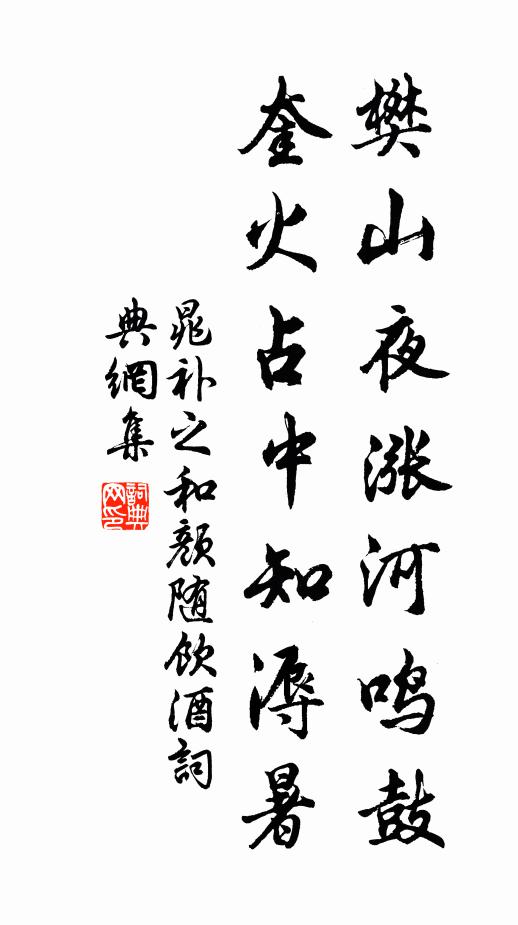 樊山夜涨河鸣鼓
奎火占中知溽暑
晁补之和颜随饮酒詞
典網集
詞典
网印